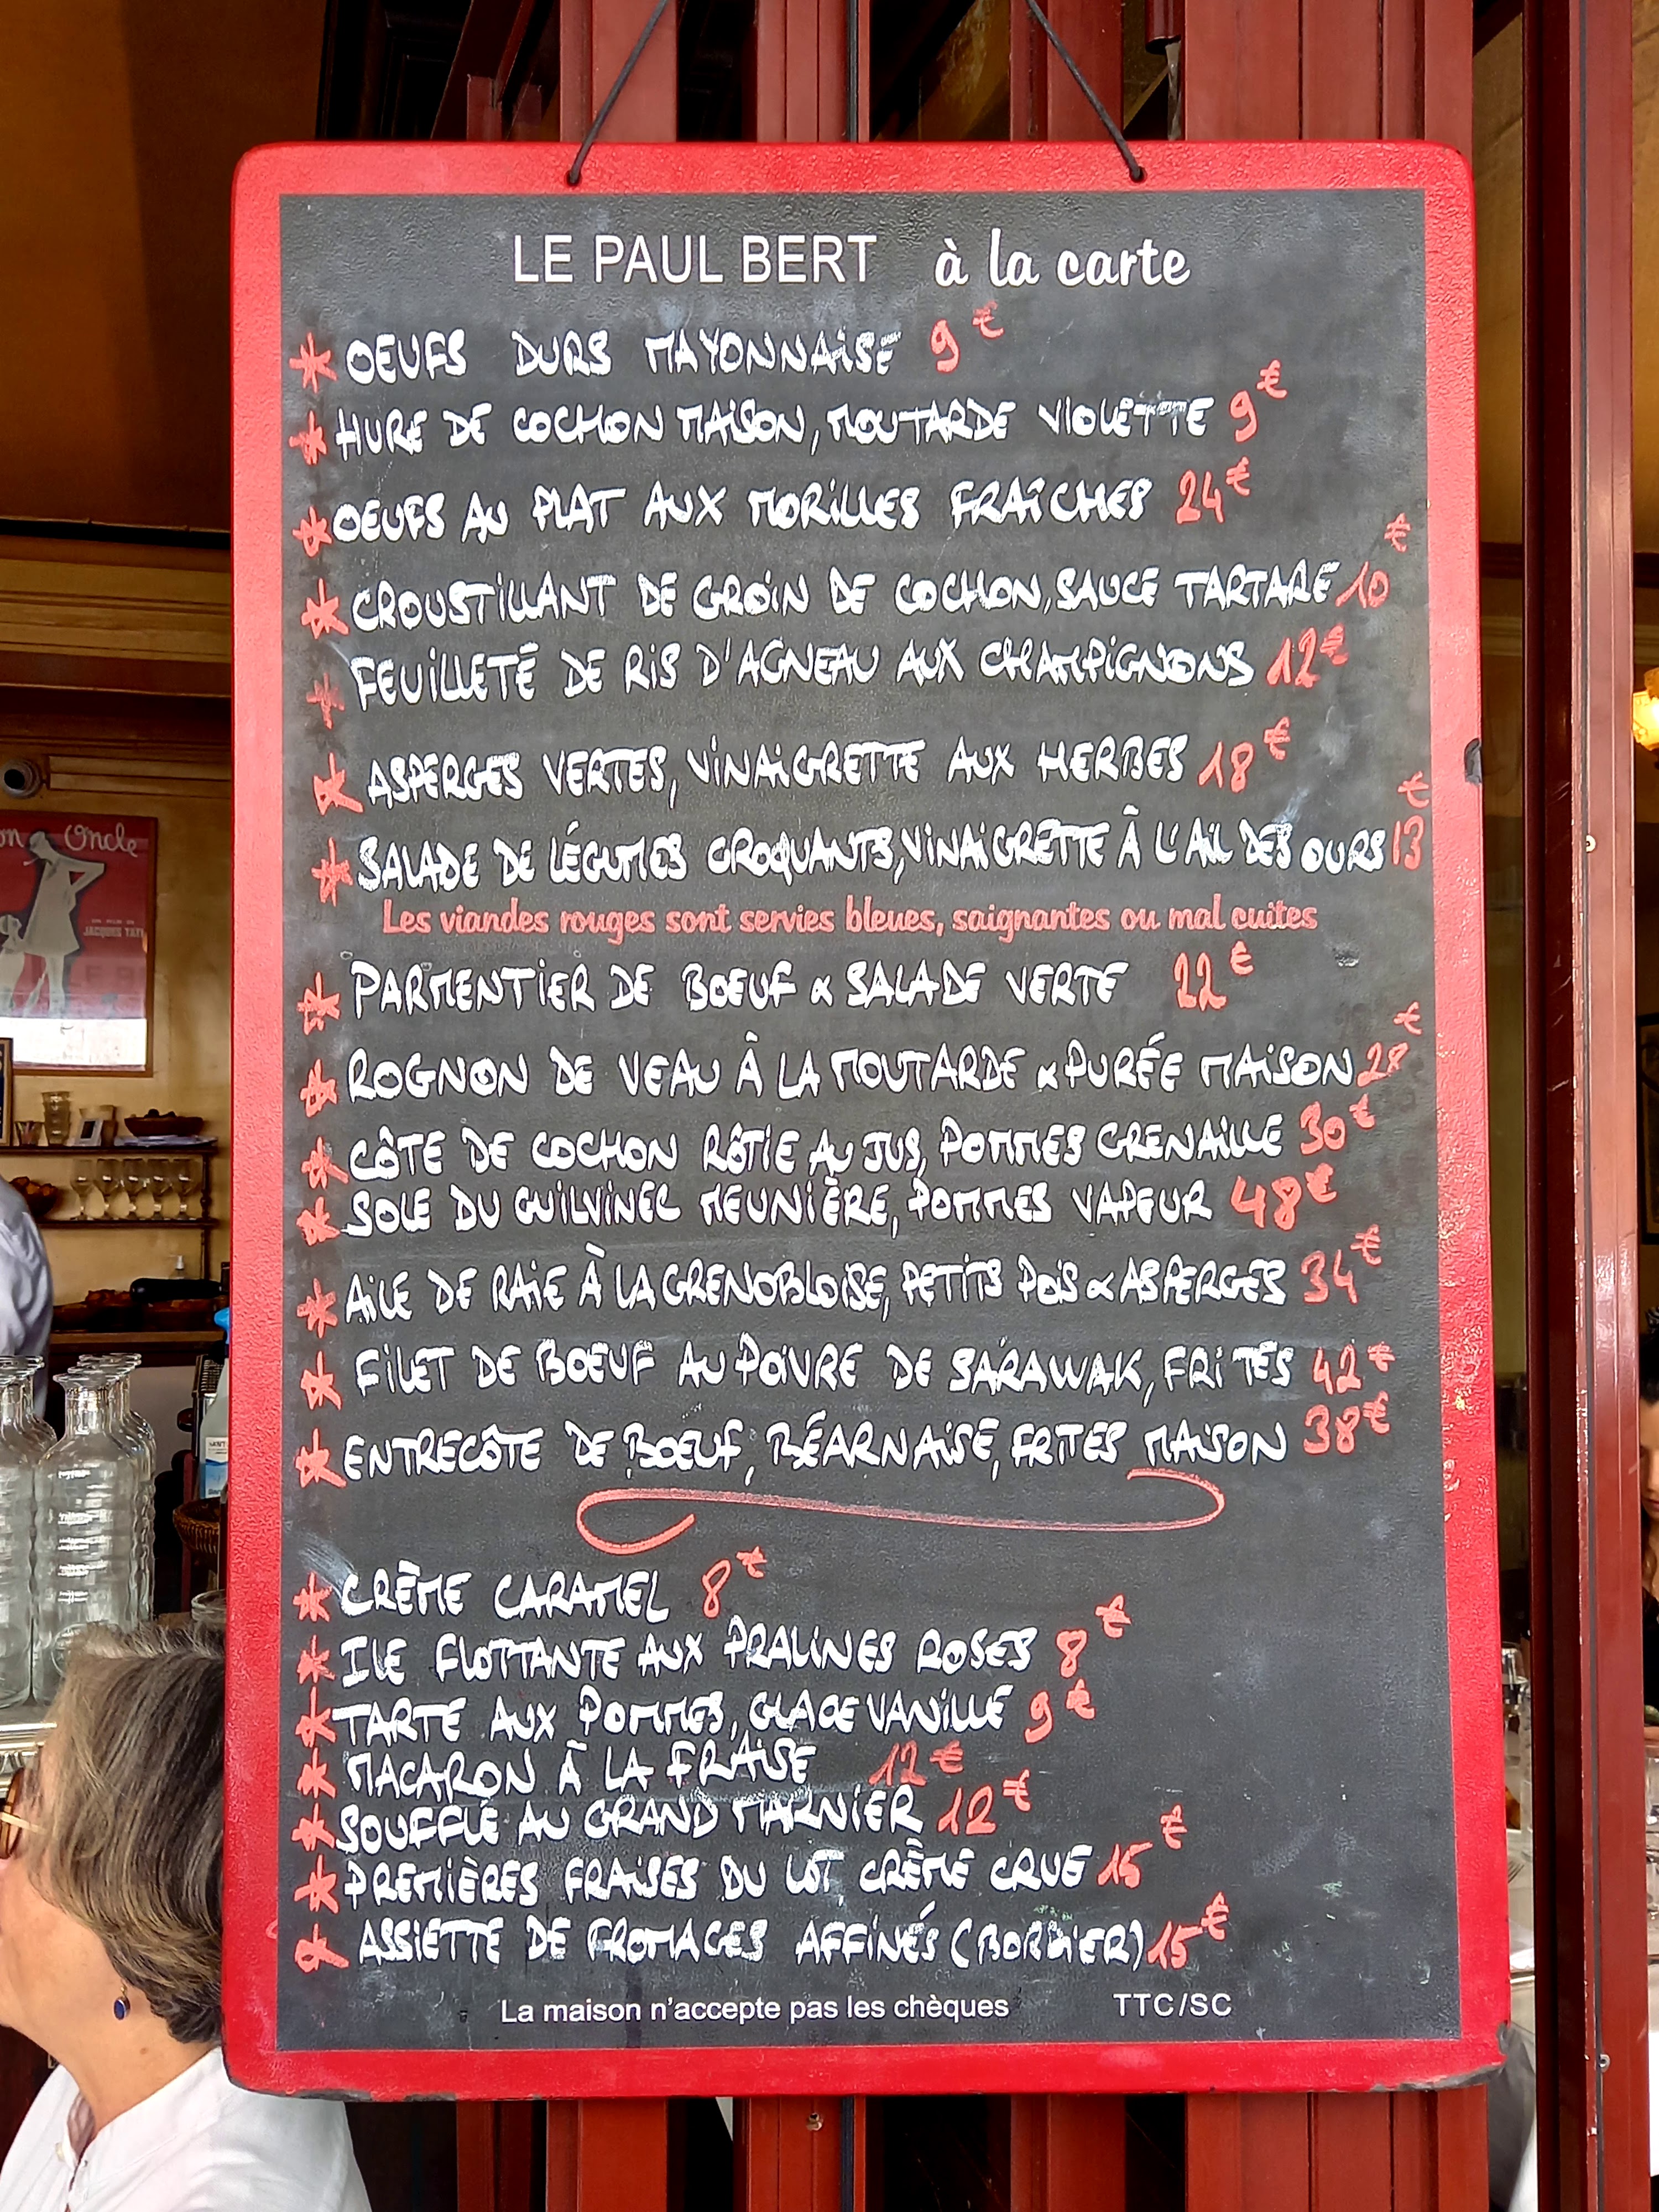 LE PAUL BERT à la carte
* OEUFS DURS MAYONNAISE 9€
* HURE DE COCHON MAISON, MOUTARDE VIOLETTE 9€
* OEUFS AU PLAT AUX MORILLES FRAÎCHES 24€
* CROUSTILLANT DE GROIN DE COCHON, SAUCE TARTARE 10€
* FEUILLETÉ DE RIS D'AGNEAU AUX CHAMPIGNONS 12€
* ASPERGES VERTES, VINAIGRETTE AUX HERBES 18€
* SALADE DE LÉGUMES CROQUANTS, VINAIGRETTE À L'AIL DES OURS 13€
Les viandes rouges sont servies bleues, saignantes ou mal cuites
* PARMENTIER DE BOEUF & SALADE VERTE 22€
* ROGNON DE VEAU À LA MOUTARDE & PURÉE MAISON 28€
* CÔTE DE COCHON RÔTIE AU JUS, POMMES GRENAILLE 30€
* SOLE DU GUILVINEC MEUNIÈRE, POMMES VAPEUR 48€
* AILE DE RAIE À LA GRENOBLOISE, PETITS POIS & ASPERGES 34€
* FILET DE BOEUF AU POIVRE DE SARAWAK, FRITES 42€
* ENTRECÔTE DE BOEUF, BÉARNAISE, FRITES MAISON 38€
* CRÈME CARAMEL 8€
* ILE FLOTTANTE AUX PRALINES ROSES 8€
* TARTE AUX POMMES, GLACE VANILLE 9€
* MACARON À LA FRAISE 12€
* SOUFFLÉ AU GRAND MARNIER 12€
* PREMIÈRES FRAISES DU LOT, CRÈME CRUE 15€
* ASSIETTE DE FROMAGES AFFINÉS (BORDIER) 15€
La maison n'accepte pas les chèques TTC/SC
on Oncle
UN FILM DE
JACQUES TATI